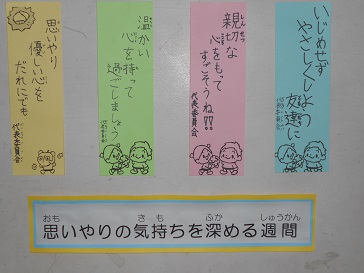 いじめせず
やさしくしよう
友達に
代表委員会
親切な
心をもって
すごそうね!!
代表委員会
温かい
心を持って
過ごしましょう
代表委員会
思いやり
優しい心を
だれにでも
代表委員会
おも きも ふか しゅうかん
思いやりの気持ちを深める週間